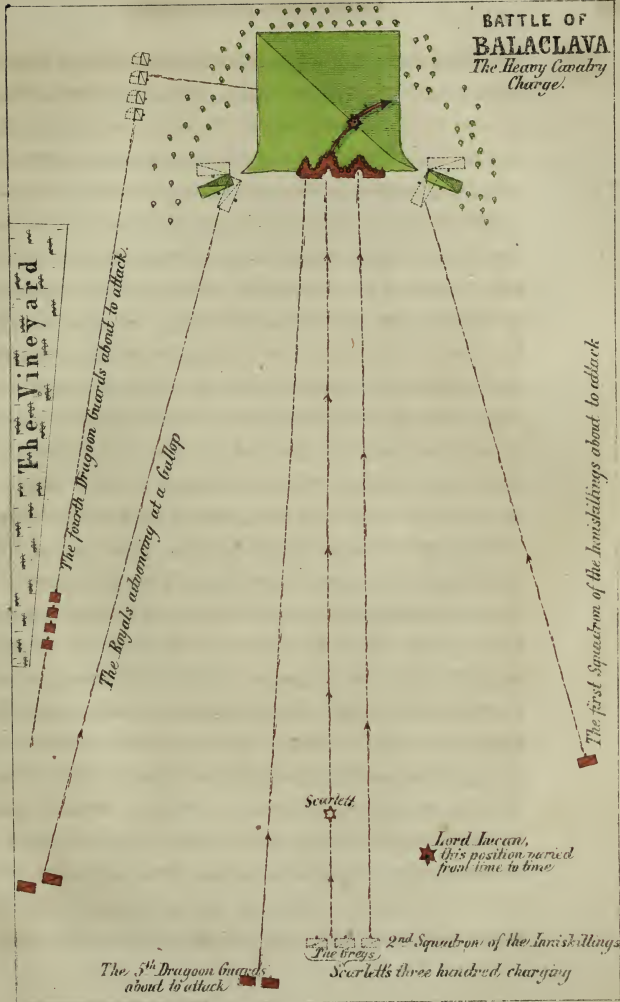 BATTLE OF
BALACLAVA
The Heavy Cavalry
Charge.
The Vineyard
The fourth Dragoon Guards about to attack.
The Royals advancing at a Gallop
The first Squadron of the Inniskillings about to attack
Scarlett.
Lord Lucan,
this position varied
from time to time
2nd Squadron of the Inniskillings
The Greys
Scarlett's three hundred charging
The 5th Dragoon Guards
about to attack